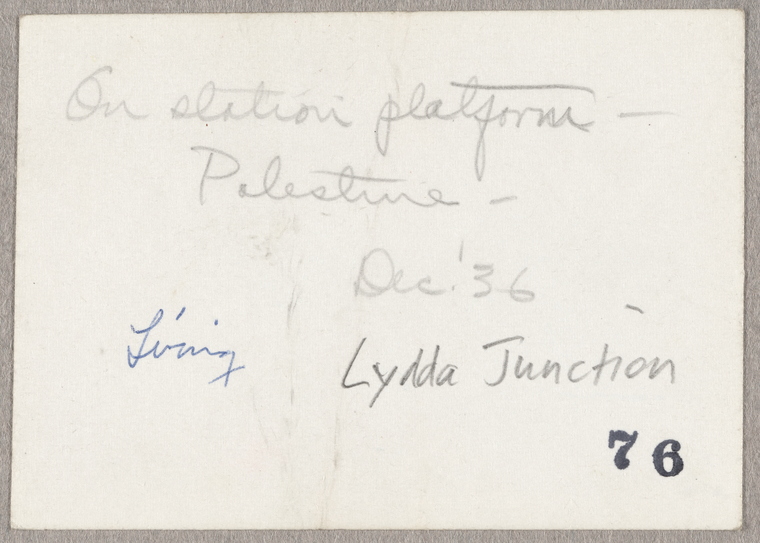 On station platform —
Palestine -
Dec. '36
Living
Lydda Junction
76